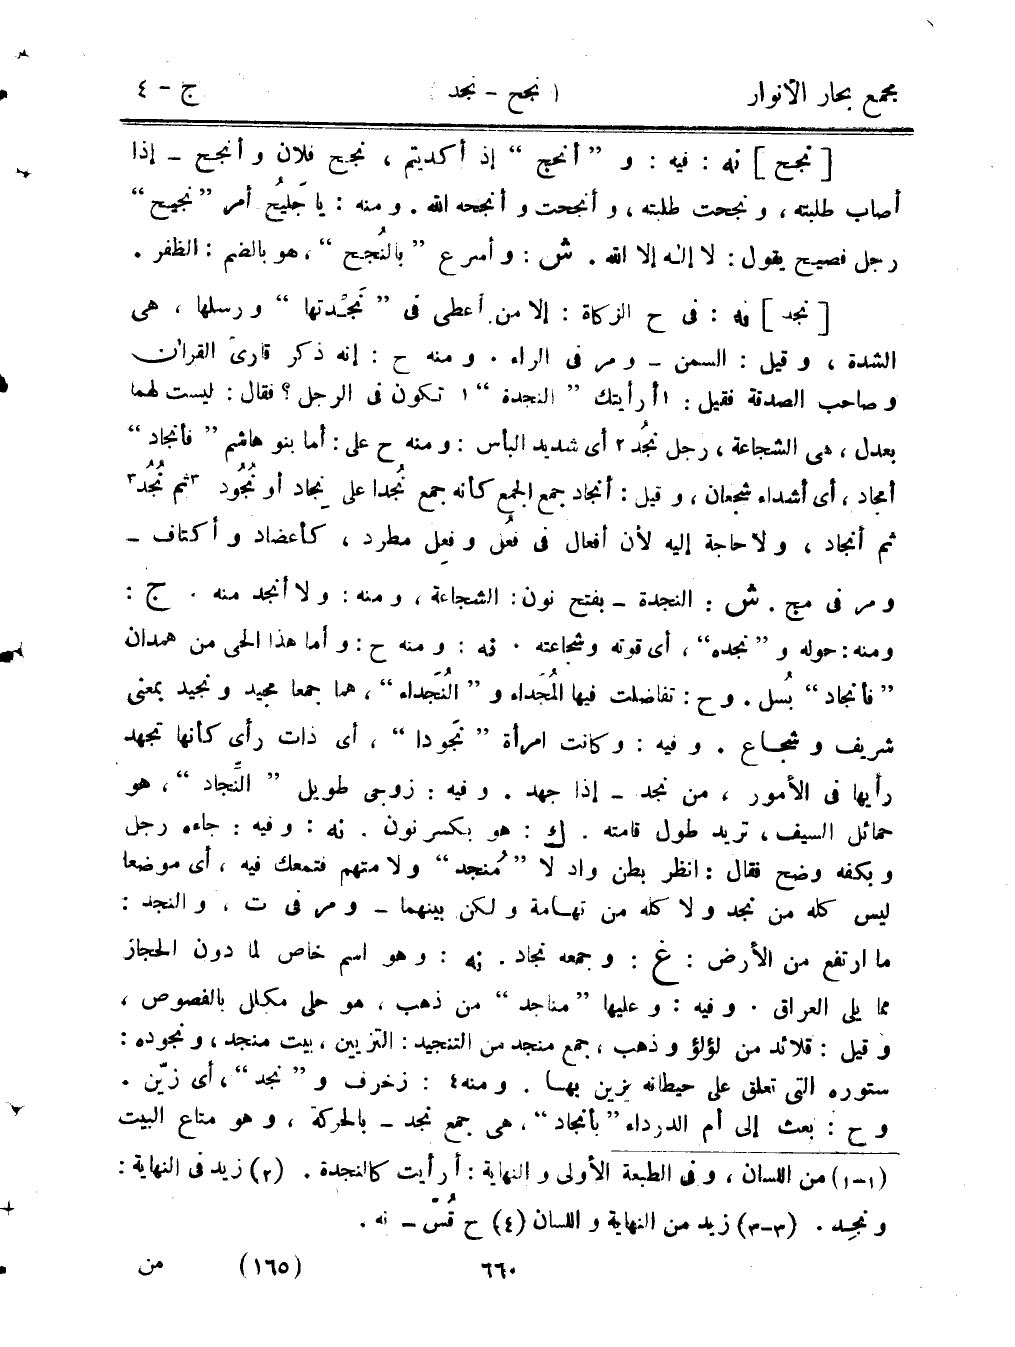 مجمع بحار الأنوار ( نجح - نجد ) ج - ٤
[ نجح ] نه : فيه : و ” أنجح “ إذ أكديتم ، نجح فلان و أنجح – إذا
أصاب طلبته ، و نجحت طلبته ، و أنجحت و أنجحه الله . و منه : يا جَليُح أمر ” نجيح “
رجل فصيح يقول : لا إله إلا الله . ش : و أسرع ” بالنُجح “ ، هو بالضم : الظفر .
[ نجد ] نه : فى ح الزكاة : إلا من أعطى فى ” نَجْدتها “ و رسلها ، هى
الشدة ، و قيل : السمن – و مر فى الراء . و منه ح : إنه ذكر قارئ القرآن
و صاحب الصدقة فقيل : ١أ رأيتك ” النجدة “ ١ تكون فى الرجل ؟ فقال : ليست لهما
بعدل ، هى الشجاعة ، رجل نجُد ٢ أى شديد البأس : و منه ح على : أما بنو هاشم ” فأنجاد “
أمجاد ، أى أشداء شجعان ، و قيل : أنجاد جمع الجمع كأنه جمع نُجدا على نِجاد أو نُجُود ٣ثم نُجُد٣
ثم أنجاد ، و لا حاجة إليه لأن أفعال فى فعُل و فعِل مطرد ، كأعضاد و أكتاف –
و مر فى مج . ش : النجدة – بفتح نون : الشجاعة ، و منه : و لا أنجد منه . ج :
و منه : حوله و ” نجده “ ، أى قوته و شجاعته . نه : و منه ح : و أما هذا الحى من همدان
” فأنجاد “ بُسل . و ح : تفاضلت فيها المُجَداء و ” النُجَداء “ ، هما جمعا مجيد و نجيد بمعنى
شريف و شجاع . و فيه : و كانت امرأة ” نَجودا “ ، أى ذات رأى كأنها تجهد
رأيها فى الأمور ، من نجد – إذا جهد . و فيه : زوجى طويل ” النِّجاد “ ، هو
حمائل السيف ، تريد طول قامته . ك : هو بكسر نون . نه : و فيه : جاءه رجل
و بكفه وضح فقال : انظر بطن واد لا ” مُنجد “ و لا متهم فتمعك فيه ، أى موضعا
ليس كله من نجد و لا كله من تهامة و لكن بينهما – و مر فى ت ، و النجد :
ما ارتفع من الأرض : غ : و جمعه نجاد . نه : و هو اسم خاص لما دون الحجاز
مما يلى العراق . و فيه : و عليها ” مناجد “ من ذهب ، هو حلى مكلل بالفصوص ،
و قيل : قلائد من لؤلؤ و ذهب ، جمع منجد من التنجيد : التزيين ، بيت منجد ، و نجوده :
ستوره التى تعلق على حيطانه يزين بها . و منه٤ : زخرف و ” نجد “ ، أى زيّن .
و ح : بعث إلى أم الدرداء ” بأنجاد “ ، هى جمع نجد – بالحركة ، و هو متاع البيت
(١-١) من اللسان ، و فى الطبعة الأولى و النهاية : أ رأيت كالنجدة . (٢) زيد فى النهاية :
و نجِد . (٣-٣) زيد من النهاية و اللسان (٤) ح قُسّ – نه .
٦٦٠ (١٦٥) من